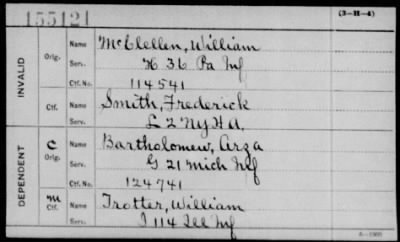 155121
(3-H-4)
INVALID
Orig.
Name McClellen, William
Serv. H 36 Pa Inf
Ctf. No. 114541
Ctf.
Name Smith, Frederick
Serv. L 2 NY H A,
DEPENDENT
C
Orig.
Name Bartholomew, Arza
Serv. G 21 Mich Inf
Ctf. No. 124741
M
Ctf.
Name Trotter, William
Serv. I 114 Ill Inf